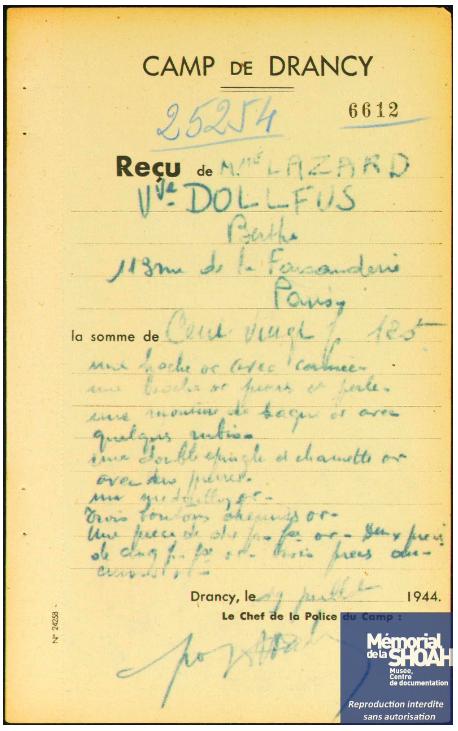 CAMP DE DRANCY
25254
6612
Reçu de Mme LAZARD
Vve DOLLFUS
Berthe
113 rue de la Faisanderie
Paris
la somme de Cent vingt 120
une broche or avec camée
une broche or et perle
une monture de bague or avec
quelques rubis
une double épingle et chainette or
avec
un or
trois boutons chemises or
Une pièce de dix f. or deux
de cinq f. or trois
or
Drancy, le 19 juillet 1944.
Le Chef de la Police du Camp :
N° 24258
Mémorial
de la SHOAH
Musée,
Centre
de documentation
Reproduction interdite
sans autorisation